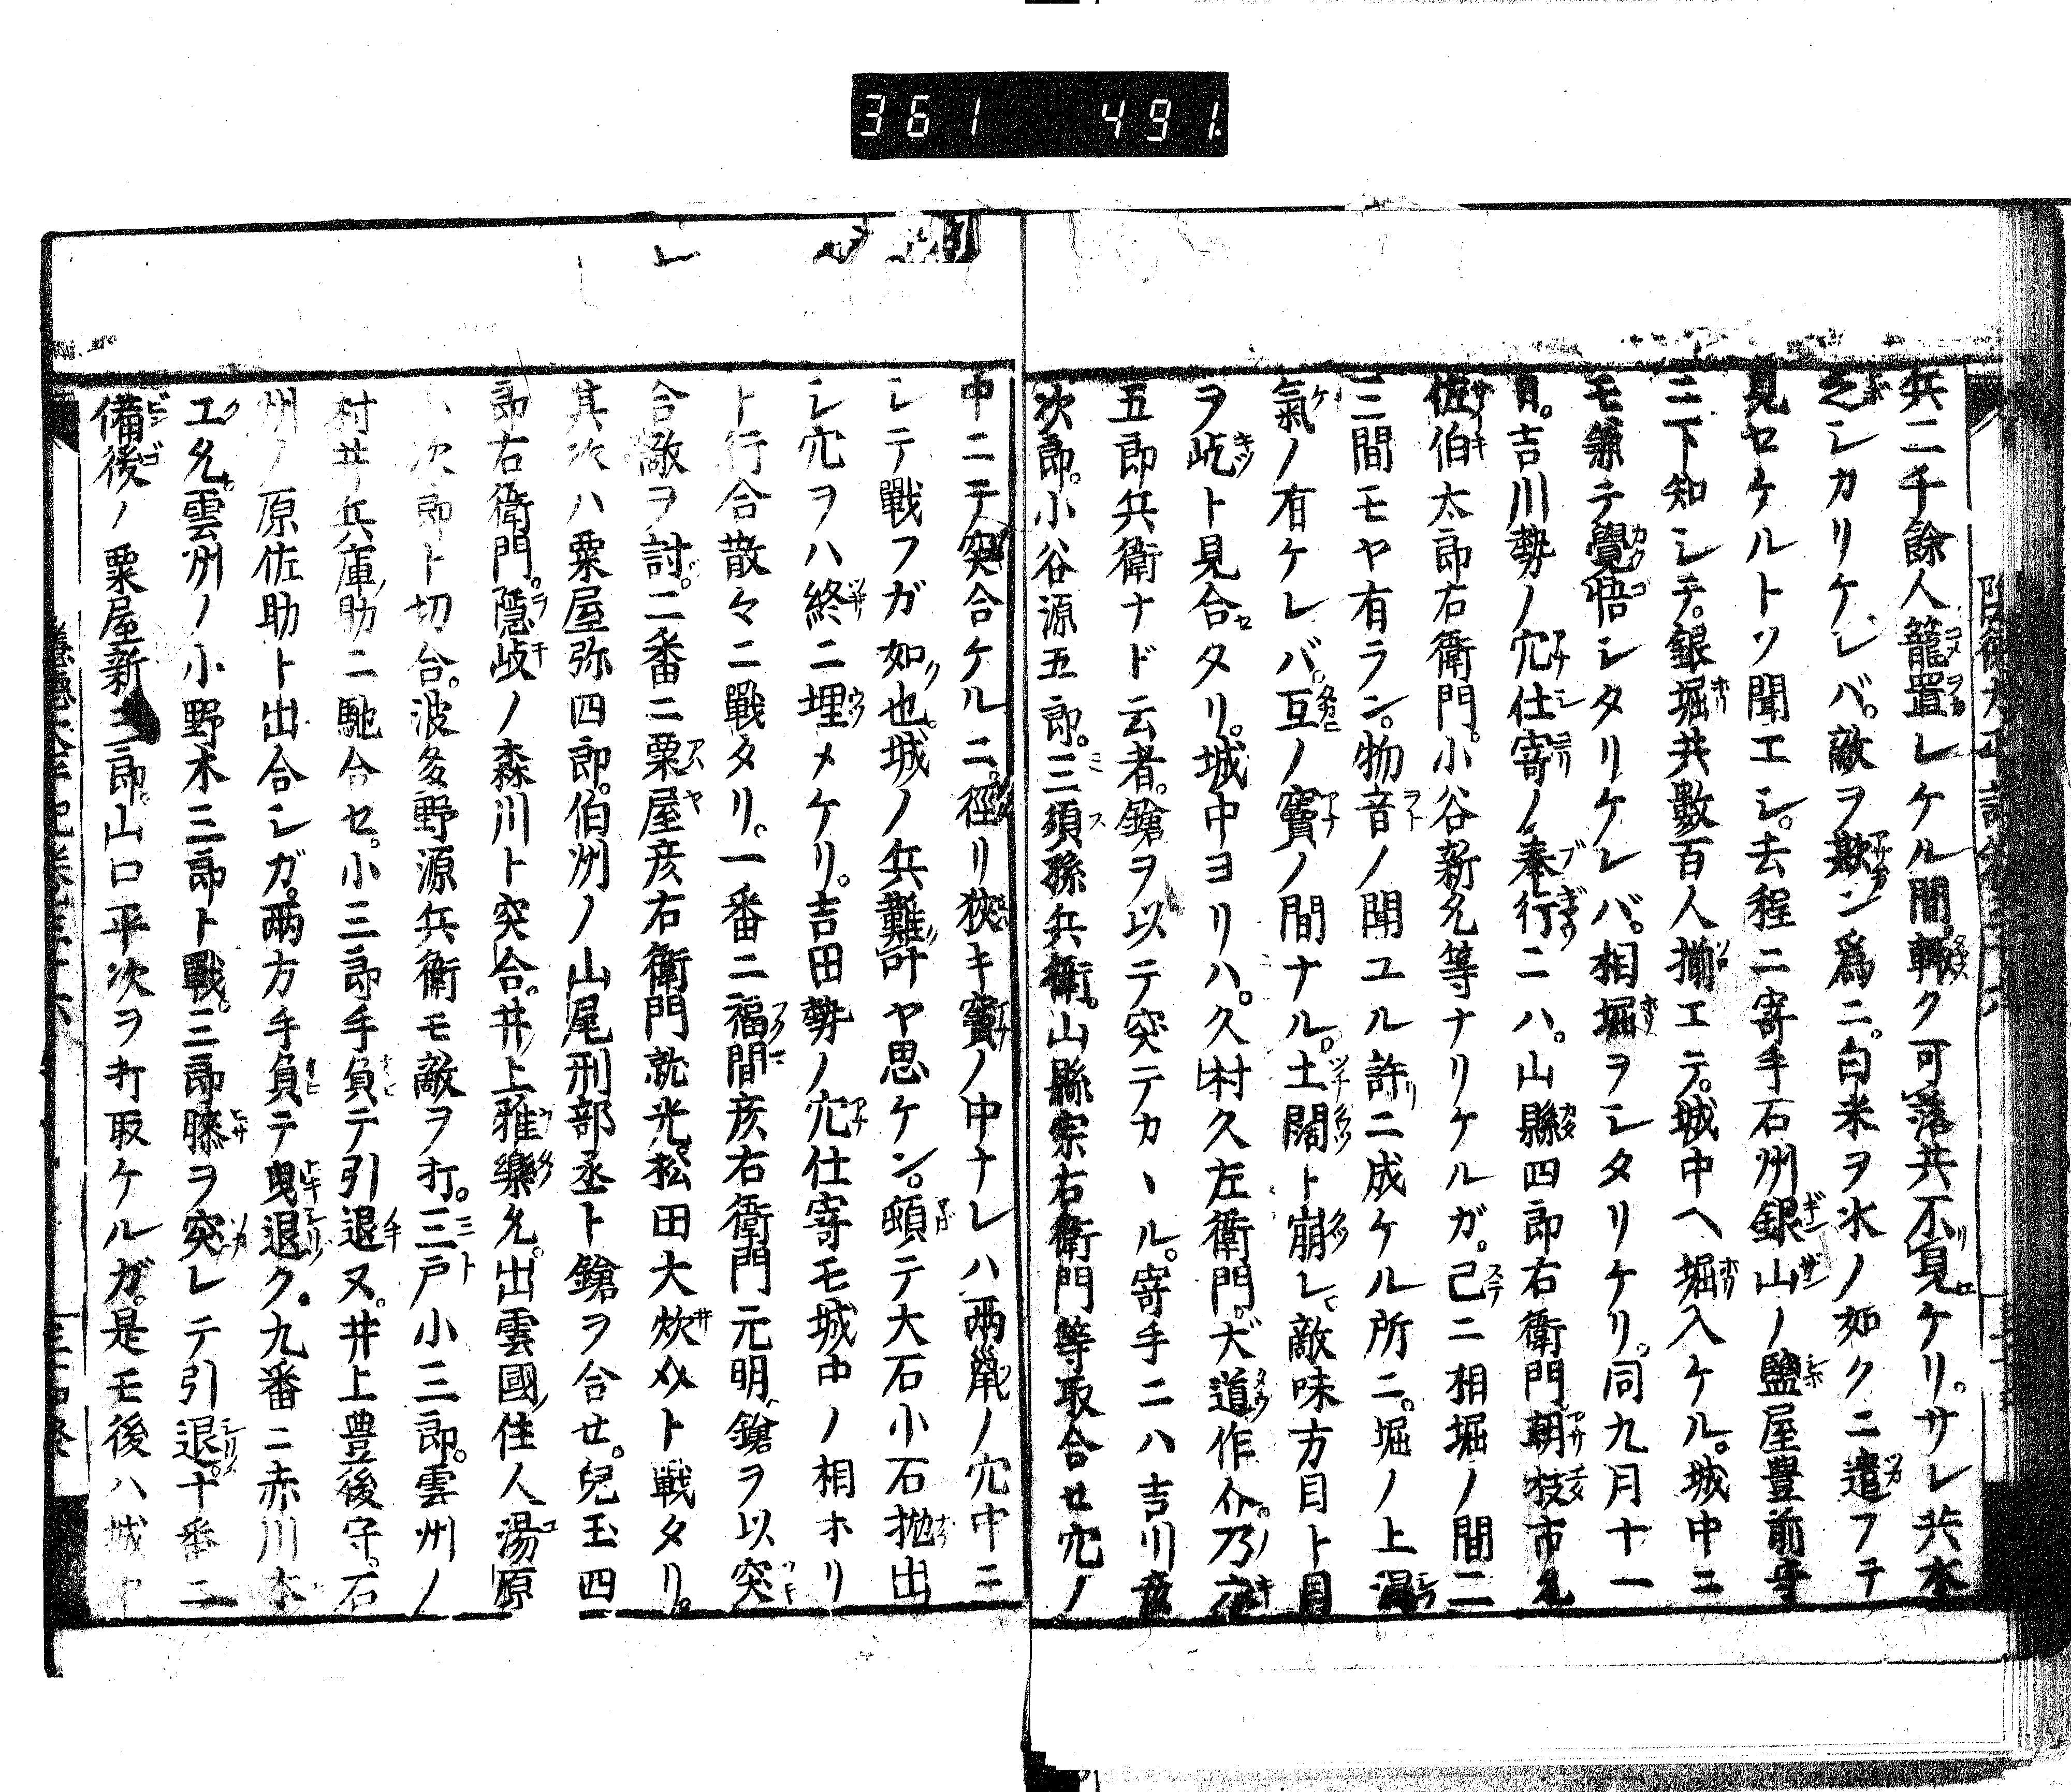 361 491
兵二千餘人籠置レケル間。輙ク可落共不見ケリ。サレ共本
乏シカリケレバ。敵ヲ欺ン爲ニ。白米ヲ水ノ如クニ遣フテ
見セケルトソ聞エシ。去程ニ寄手石州銀山ノ鹽屋豊前守
ニ下知シテ。銀堀共數百人揃エテ。城中ヘ堀入ケル。城中ニ
モ兼テ覺悟シタリケレバ。相堀ヲシタリケリ。同九月十一
日。吉川勢ノ穴仕寄ノ奉行ニハ。山縣四郎右衛門朝枝市允
佐伯太郎右衛門。小谷新允等ナリケルガ。己ニ相堀ノ間二
三間モヤ有ラン。物音ノ聞ユル許ニ成ケル所ニ。堀ノ上濕
氣ノ有ケレバ。互ノ竇ノ間ナル。土闊ト崩レ。敵味方目ト目
ヲ屹ト見合タリ。城中ヨリハ。久村久左衛門。犬道作介。乃木
五郎兵衛ナド云者。鎗ヲ以テ突テカヽル。寄手ニハ吉川彦
次郎。小谷源五郎。三須孫兵衛。山縣宗右衛門等取合セ穴ノ
中ニテ突合ケルニ。徑リ狹キ竇ノ中ナレハ両鼠ノ穴中ニ
シテ戰フガ如也。城ノ兵難叶ヤ思ケン。頻テ大石小石抛出
シ穴ヲハ終ニ埋メケリ。吉田勢ノ穴仕寄モ城中ノ相ホリ
ト行合散々ニ戰タリ。一番ニ福間彦右衛門元明鎗ヲ以突
合敵ヲ討。二番ニ粟屋彦右衛門就光。松田大炊允ト戦タリ。
其次ハ粟屋弥四郎。伯州ノ山尾刑部丞ト鎗ヲ合セ。兒玉四
郎右衛門。隱岐ノ森川ト突合。井上雅樂允。出雲國住人湯原
小次郎ト切合。波多野源兵衛モ敵ヲ打。三戸小三郎。雲州ノ
村井兵庫助ニ馳合セ。小三郎手負テ引退又。井上豊後守。石
州ノ原佐助ト出合シガ。両方手負テ曳退ク。九番ニ赤川木
工允。雲州ノ小野木三郎ト戰。三郎膝ヲ突レテ引退。十番ニ
備後ノ粟屋新三郎。山口平次ヲ打取ケルガ。是モ後ハ城中